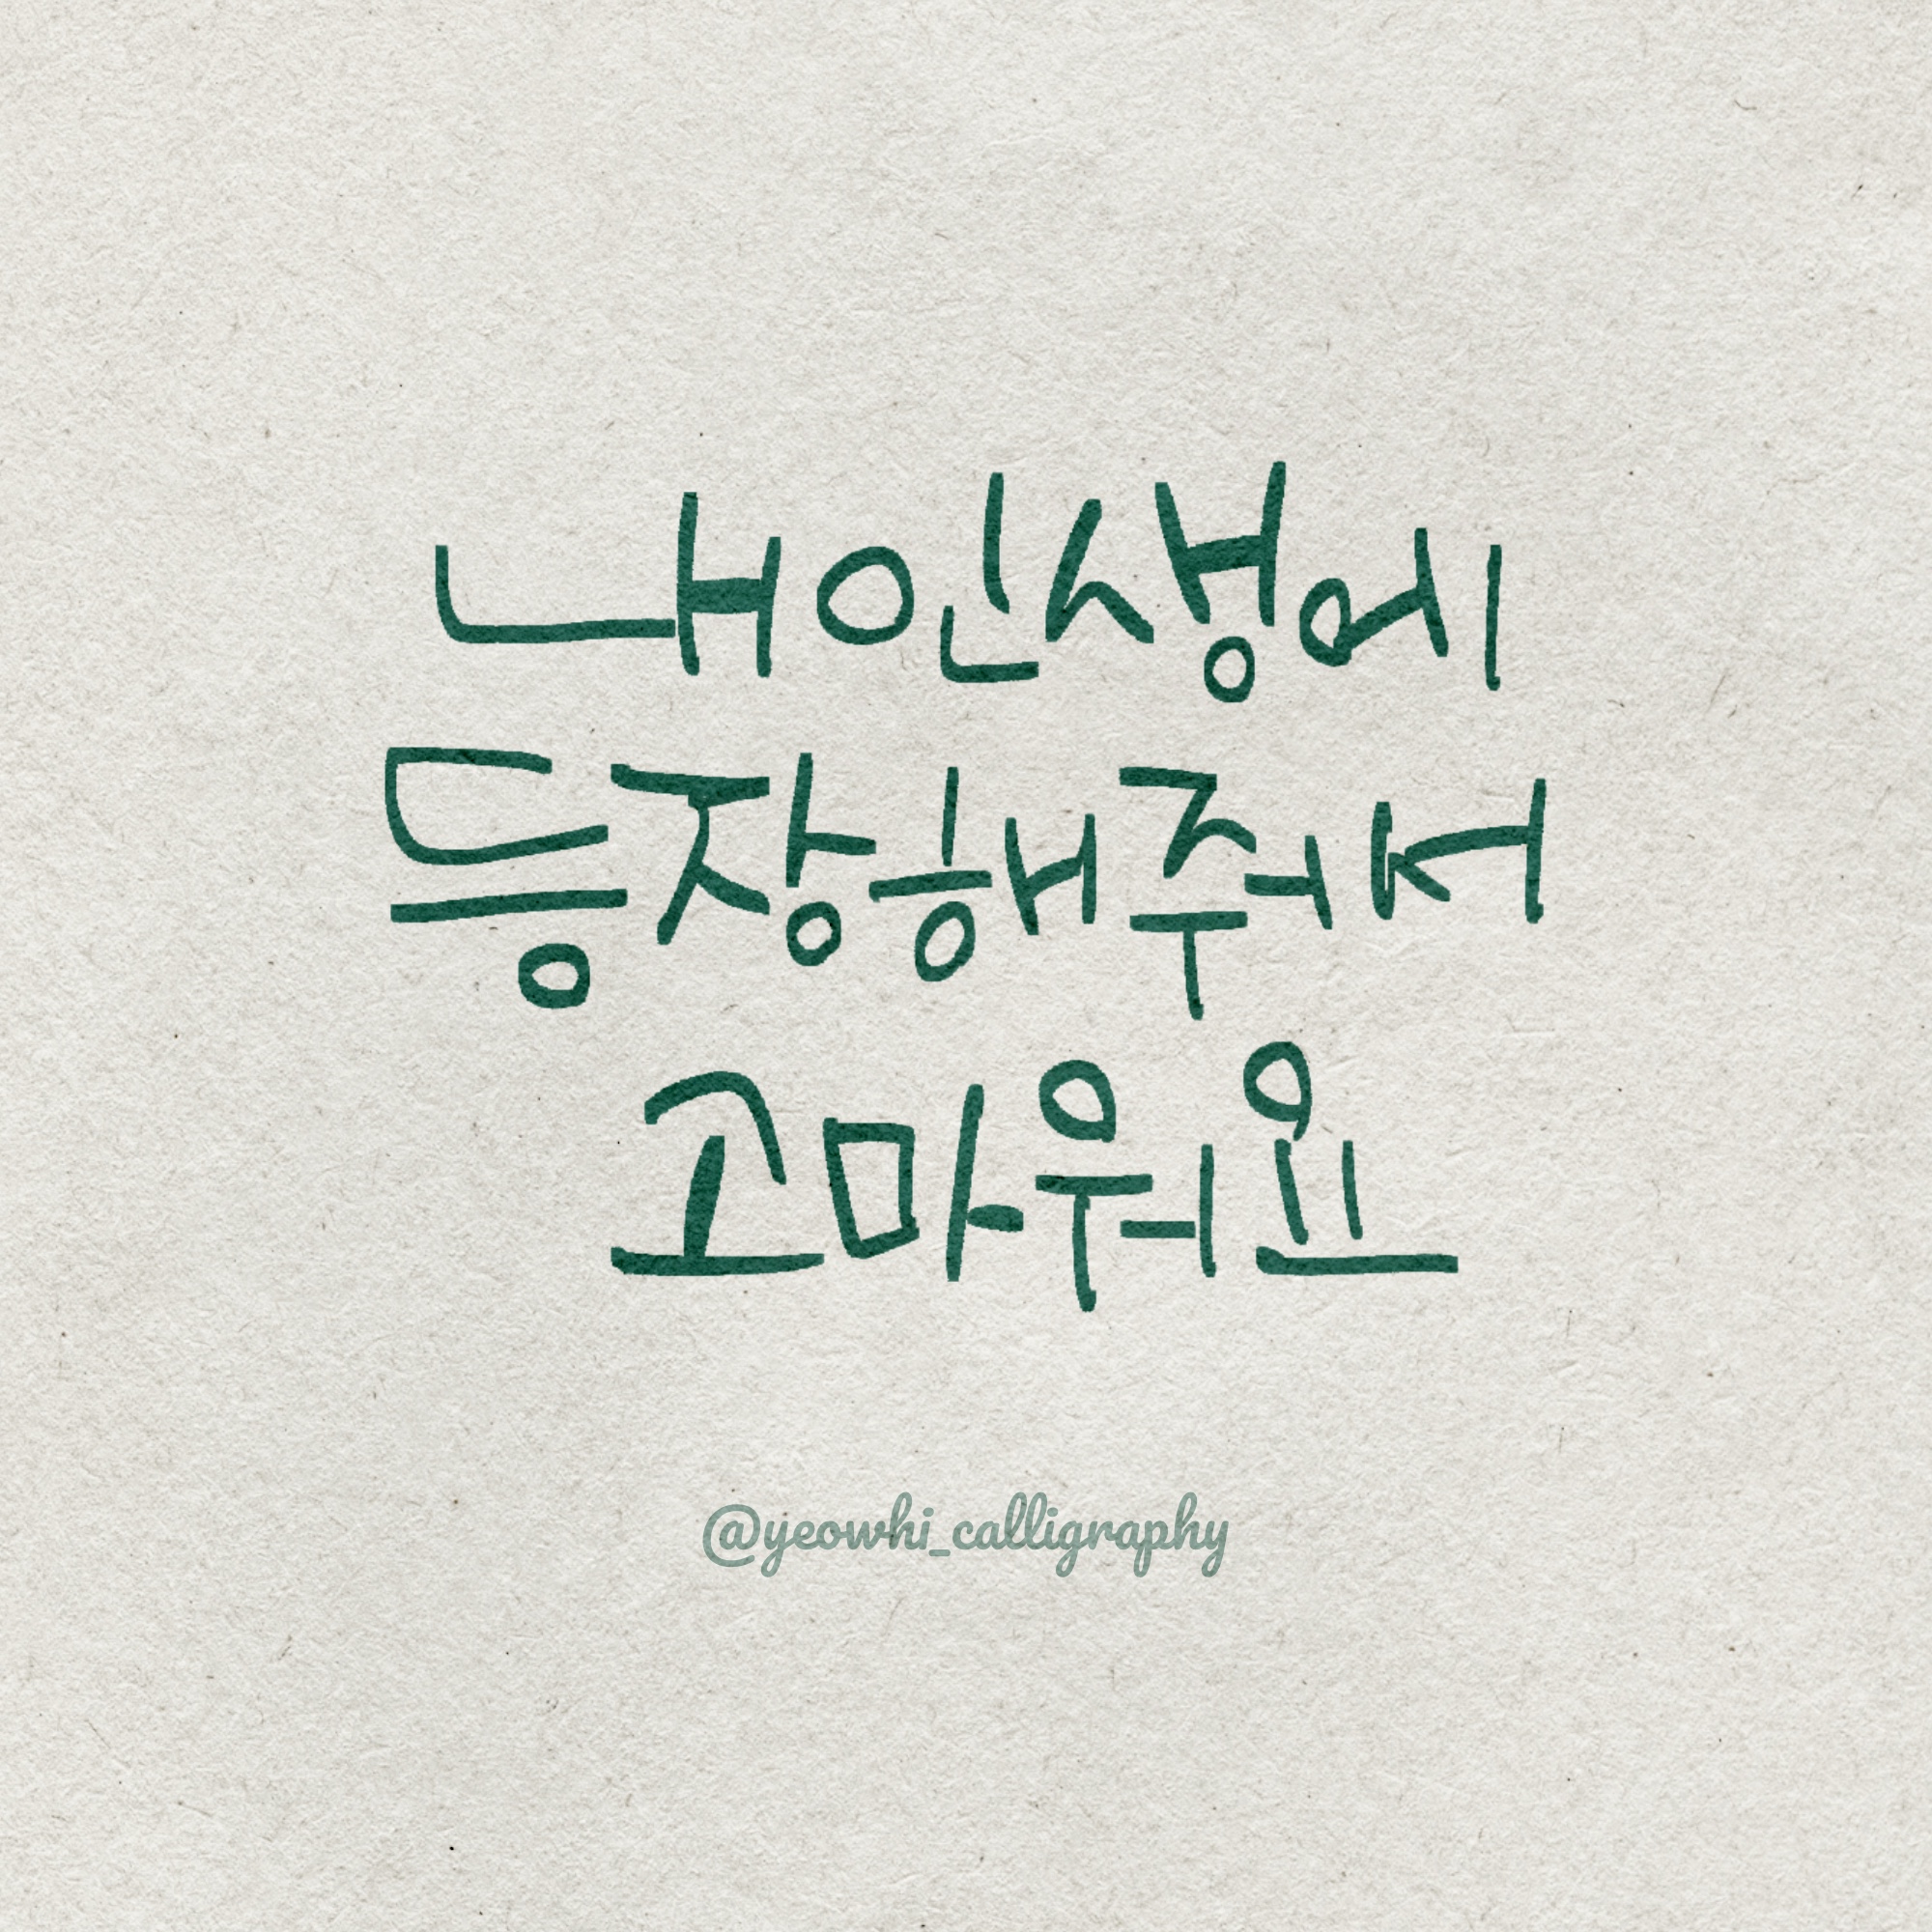 내 인생에
등장해줘서
고마워요
@yeowhi_calligraphy